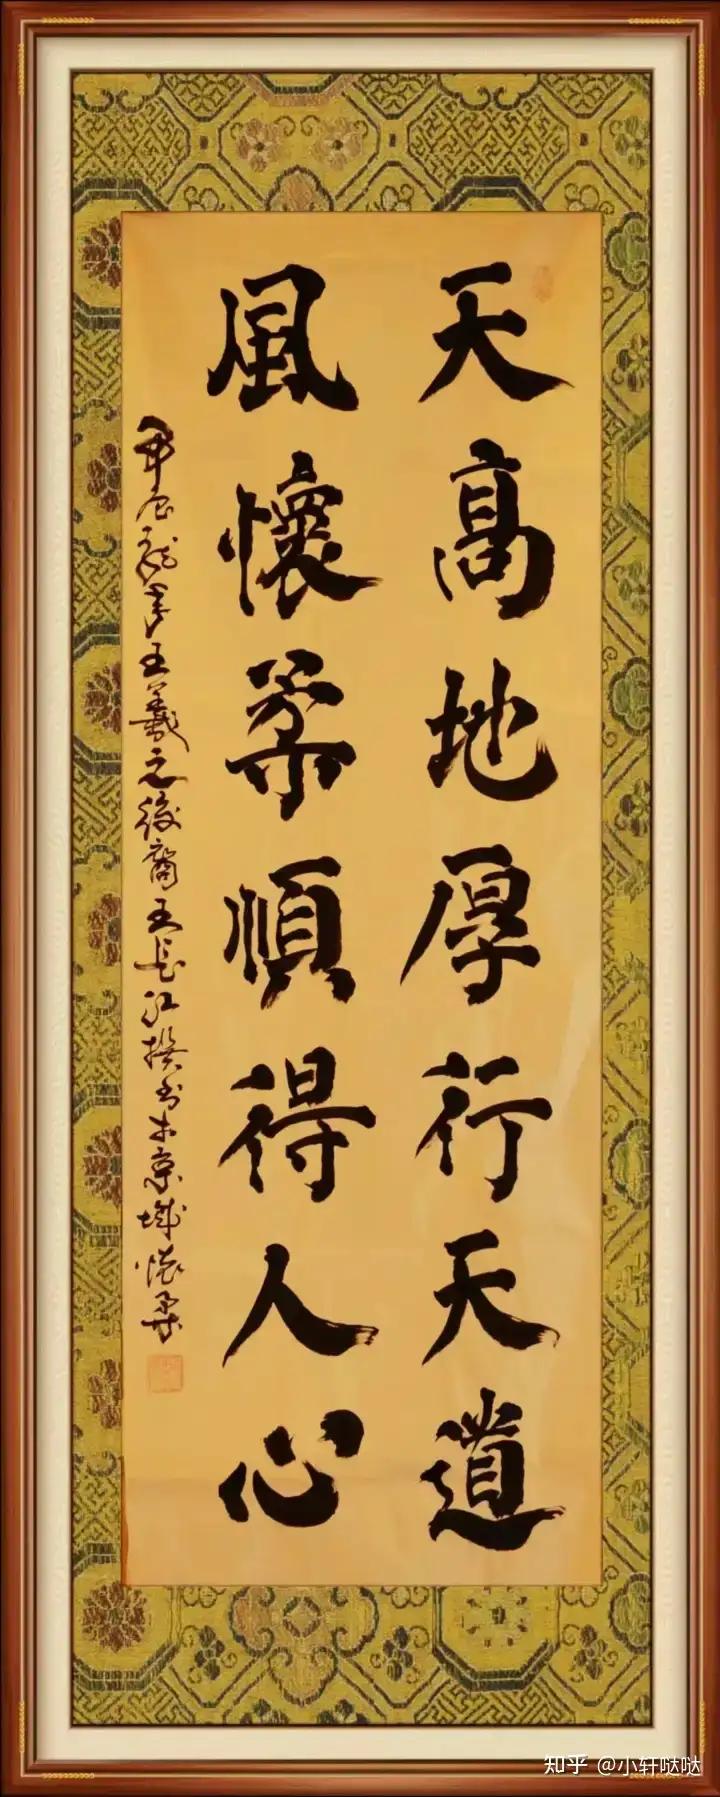 天高地厚行天道
風懷柔順得人心
甲辰龍年王羲之後裔王長江撰書於京城懷柔
知乎 @小轩哒哒